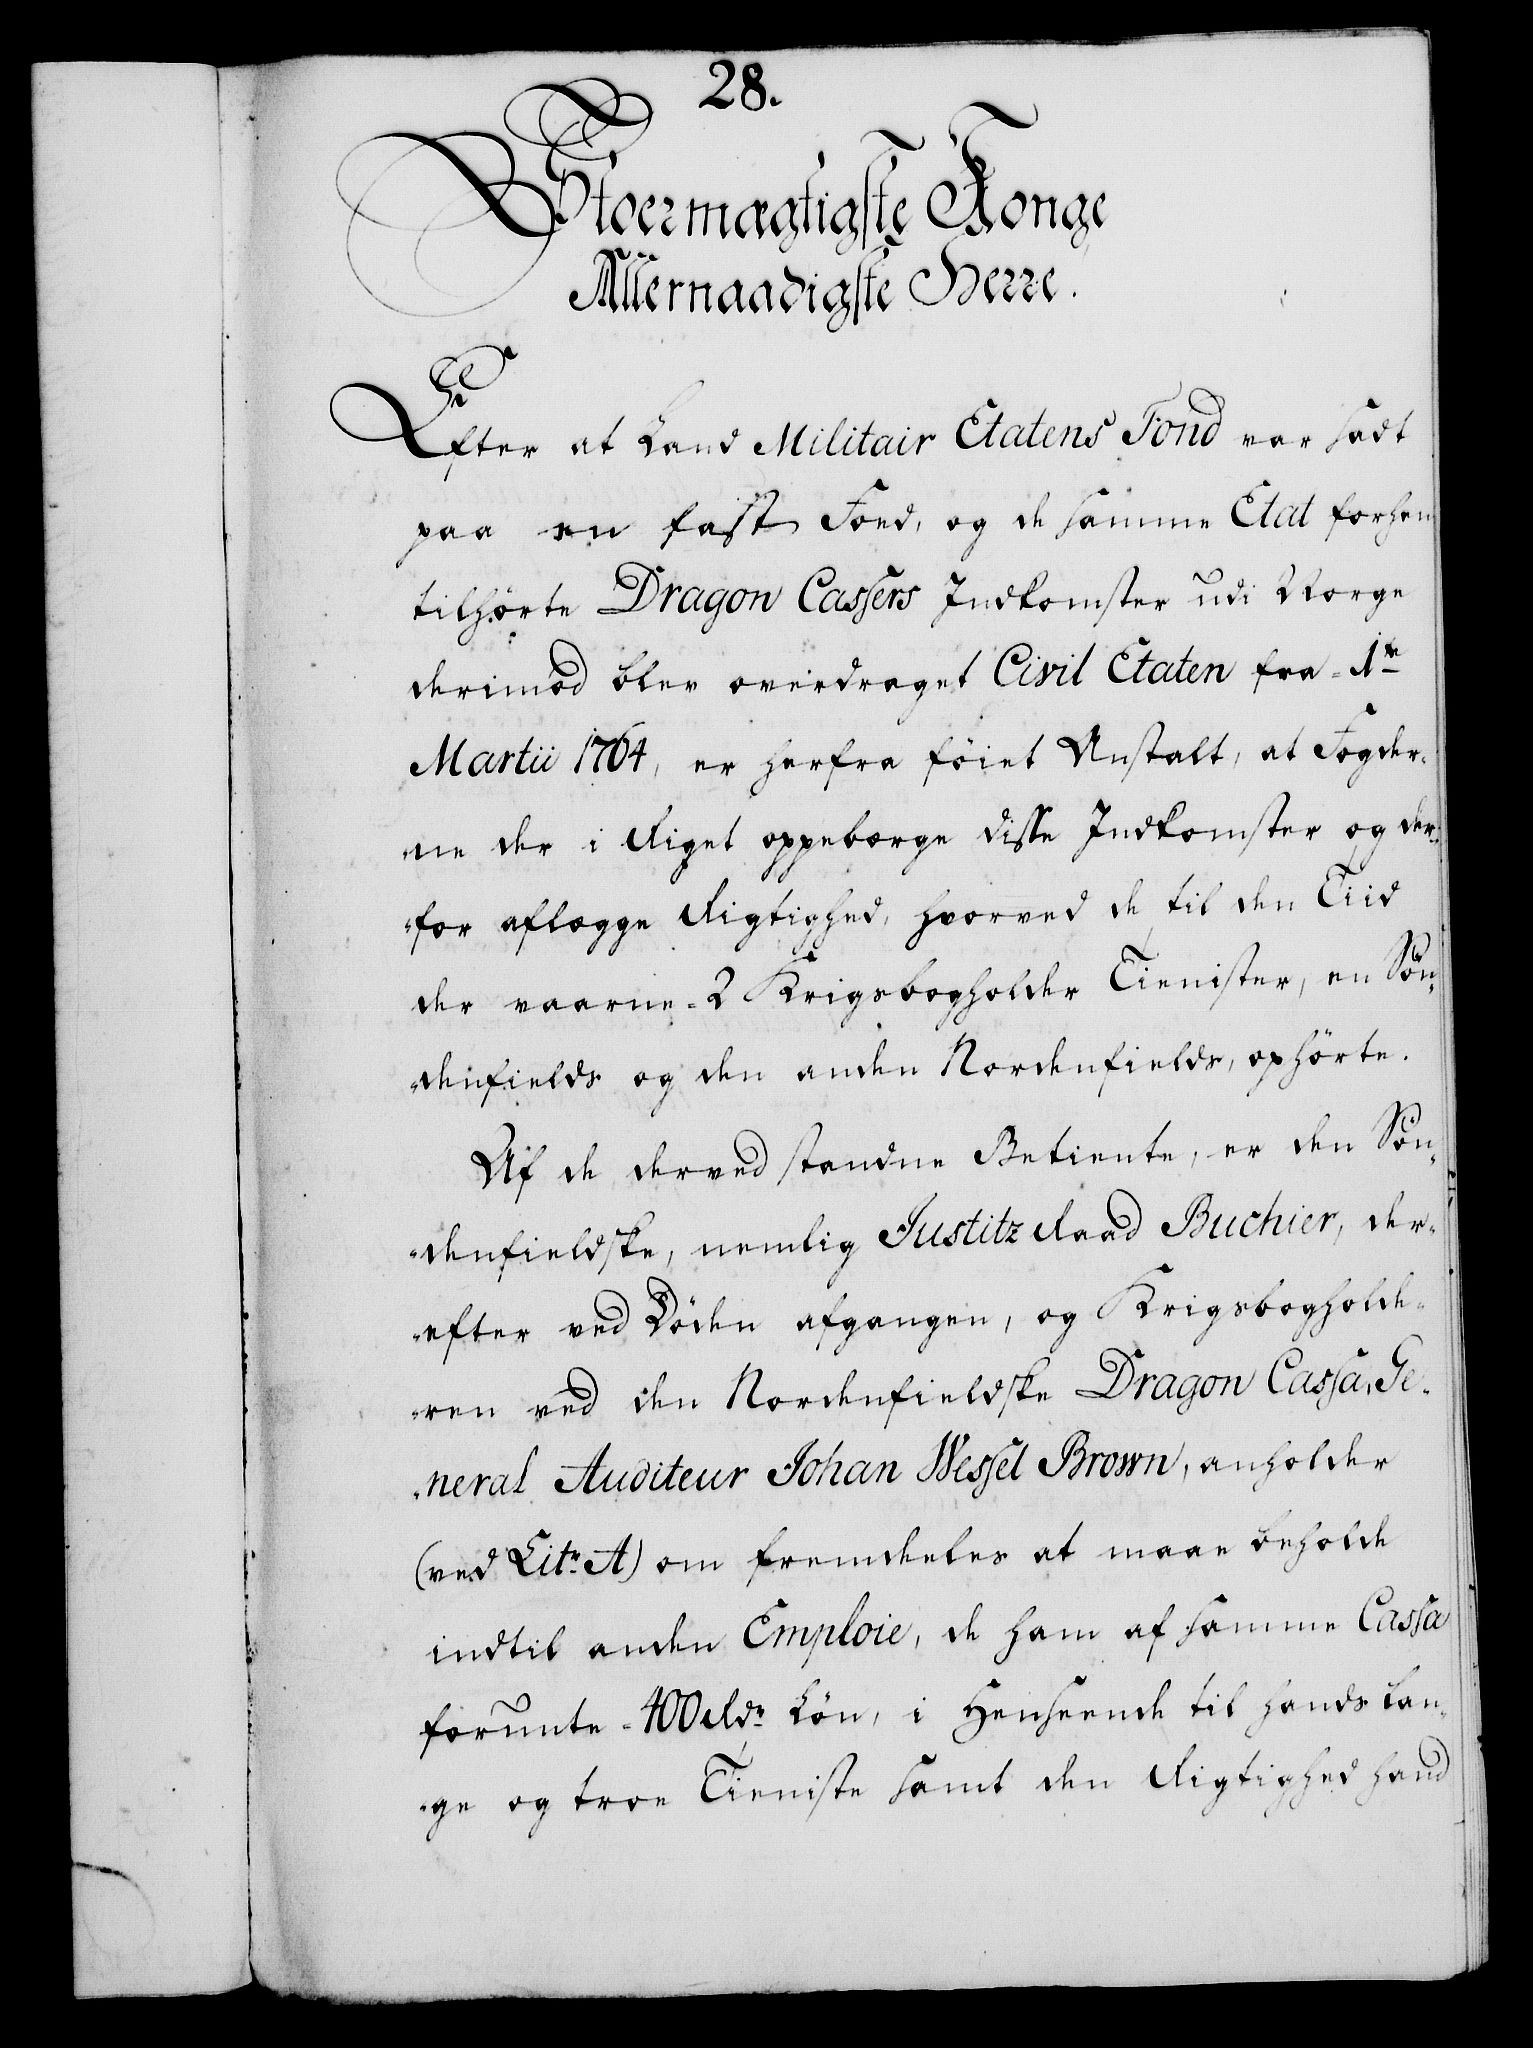 28.
Stoermægtigste Konge
Allernaadigste Herre.
Efter at Land Militair Etatens Fond var sadt
paa en fast Foed, og de samme Etat forhen
tilhörte Dragon Cassers Indkomster udi Norge
derimod blev overdraget Civil Etaten fra 1te
Martii 1764, er herfra föiet Anstalt, at Fogder-
ne der i Riget oppebærge disse Indkomster og der-
for aflægge Rigtighed, hvorved de til den Tiid
der vaarne 2 Krigsbogholder Tienister, en Sön-
denfields og den anden Nordenfields, ophörte.
Af de derved standne Betiente, er den Sön-
denfieldske, nemlig Justitz Raad Buchier, der-
efter ved Döden afgangen, og Krigsbogholde-
ren ved den Nordenfieldske Dragon Cassa, Ge-
neral Auditeur Johan Wessel Brown, anholder
(ved Litr. A) om fremdeles at maae beholde
indtil anden Emploie, de ham af samme Cassa
forunte 400 Rdr. Lön, i Henseende til hands lan-
ge og troe Tieniste samt den Rigtighed hand